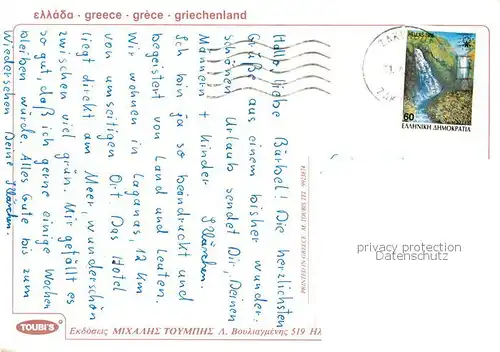 ελλάδα · greece · grèce · griechenland
Hallo, liebe Bärbel! Die herzlichsten
Grüße aus einem bisher wunder-
schönen Urlaub sendet Dir, Deinen
Männern + Kinder Klärchen.
Ich bin ja so beeindruckt und
begeistert von Land und Leuten.
Wir wohnen in Laganas, 12 km
von umseitigen Ort. Das Hotel
liegt direkt am Meer, wunderschön
zwischen viel grün. Mir gefällt es
so gut, daß ich gerne einige Wochen
bleiben würde. Alles Gute bis zum
Wiedersehen Deine Klärchen.
HELLAS
60
ΕΛΛΗΝΙΚΗ ΔΗΜΟΚΡΑΤΙΑ
PRINTED IN GREECE M. TOUBIS
privacy protection
Datenschutz
TOUBI'S
Εκδόσεις ΜΙΧΑΛΗΣ ΤΟΥΜΠΗΣ Λ. Βουλιαγμένης 519 Ηλ